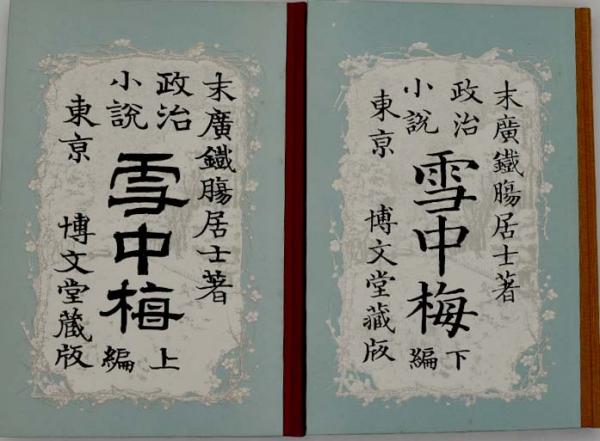 末廣鐵膓居士著
政治
小説
雪中梅
上編
東亰 博文堂藏版
末廣鐵膓居士著
政治
小説
雪中梅
下編
東亰 博文堂藏版